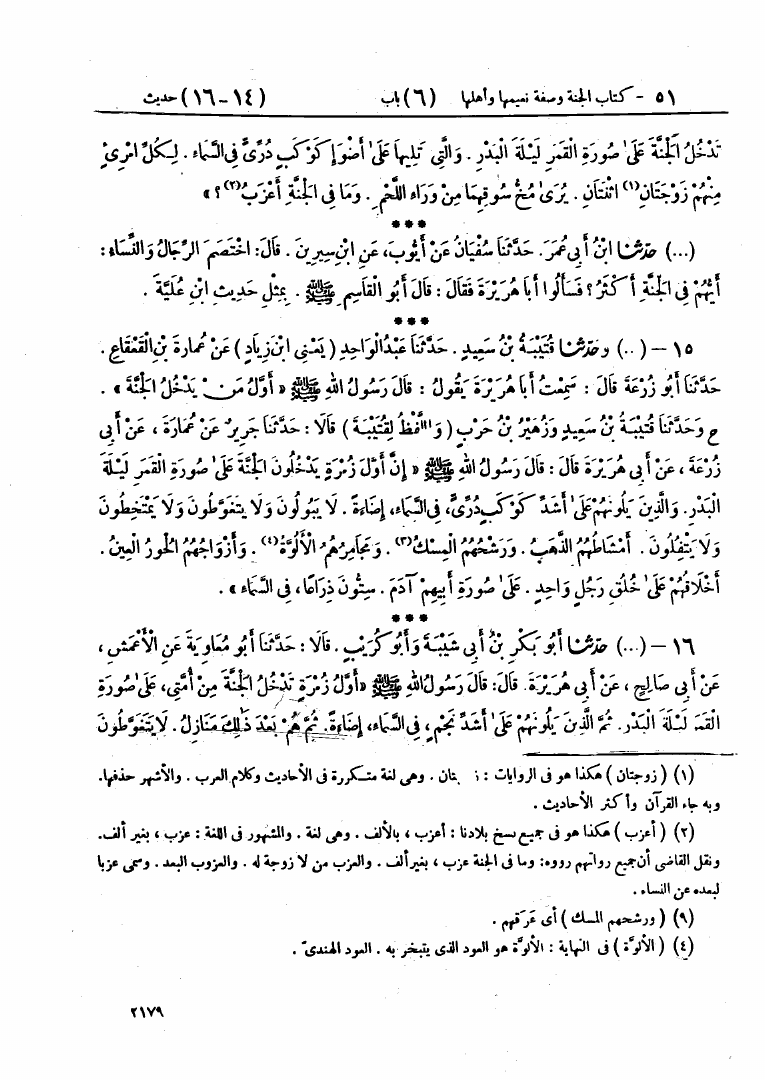 ٥١ - كتاب الجنة وصفة نعيمها وأهلها (٦) باب (١٤-١٦) حديث
تَدْخُلُ الْجَنَّةَ عَلَىٰ صُورَةِ الْقَمَرِ لَيْلَةَ الْبَدْرِ . وَالَّتِي تَلِيهَا عَلَىٰ أَضْوَإِ كَوْكَبٍ دُرِّيٍّ فِي السَّمَاءِ . لِكُلِّ امْرِئٍ
مِنْهُمْ زَوْجَتَانِ(١) اثْنَتَانِ . يُرَىٰ مُخُّ سُوقِهِمَا مِنْ وَرَاءِ اللَّحْمِ . وَمَا فِي الْجَنَّةِ أَعْزَبُ(٢)؟ »
***
(...) حَدَّثَنَا ابْنُ أَبِي عُمَرَ. حَدَّثَنَا سُفْيَانُ عَنْ أَيُّوبَ، عَنِ ابْنِ سِيرِينَ . قَالَ: اخْتَصَمَ الرِّجَالُ وَالنِّسَاءُ :
أَيُّهُمْ فِي الْجَنَّةِ أَكْثَرُ؟ فَسَأَلُوا أَبَا هُرَيْرَةَ فَقَالَ : قَالَ أَبُو الْقَاسِمِ ﷺ . بِمِثْلِ حَدِيثِ ابْنِ عُلَيَّةَ .
***
١٥ – (..) وحَدَّثَنَا قُتَيْبَةُ بْنُ سَعِيدٍ . حَدَّثَنَا عَبْدُ الْوَاحِدِ ( يَعْنِي ابْنَ زِيَادٍ ) عَنْ عُمَارَةَ بْنِ الْقَعْقَاعِ .
حَدَّثَنَا أَبُو زُرْعَةَ قَالَ : سَمِعْتُ أَبَا هُرَيْرَةَ يَقُولُ : قَالَ رَسُولُ اللهِ ﷺ « أَوَّلُ مَنْ يَدْخُلُ الْجَنَّةَ » .
ح وَحَدَّثَنَا قُتَيْبَةُ بْنُ سَعِيدٍ وَزُهَيْرُ بْنُ حَرْبٍ ( وَاللَّفْظُ لِقُتَيْبَةَ ) قَالَا : حَدَّثَنَا جَرِيرٌ عَنْ عُمَارَةَ ، عَنْ أَبِي
زُرْعَةَ ، عَنْ أَبِي هُرَيْرَةَ قَالَ : قَالَ رَسُولُ اللهِ ﷺ « إِنَّ أَوَّلَ زُمْرَةٍ يَدْخُلُونَ الْجَنَّةَ عَلَىٰ صُورَةِ الْقَمَرِ لَيْلَةَ
الْبَدْرِ. وَالَّذِينَ يَلُونَهُمْ عَلَىٰ أَشَدِّ كَوْكَبٍ دُرِّيٍّ، فِي السَّمَاءِ، إِضَاءَةً . لَا يَبُولُونَ وَلَا يَتَغَوَّطُونَ وَلَا يَمْتَخِطُونَ
وَلَا يَتْفِلُونَ . أَمْشَاطُهُمُ الذَّهَبُ . وَرَشْحُهُمُ الْمِسْكُ(٣) . وَمَجَامِرُهُمُ الْأَلُوَّةُ(٤) . وَأَزْوَاجُهُمُ الْحُورُ الْعِينُ .
أَخْلَاقُهُمْ عَلَىٰ خُلُقِ رَجُلٍ وَاحِدٍ . عَلَىٰ صُورَةِ أَبِيهِمْ آدَمَ . سِتُّونَ ذِرَاعًا، فِي السَّمَاءِ » .
***
١٦ – (...) حَدَّثَنَا أَبُو بَكْرِ بْنُ أَبِي شَيْبَةَ وَأَبُو كُرَيْبٍ . قَالَا : حَدَّثَنَا أَبُو مُعَاوِيَةَ عَنِ الْأَعْمَشِ ،
عَنْ أَبِي صَالِحٍ ، عَنْ أَبِي هُرَيْرَةَ. قَالَ: قَالَ رَسُولُ اللهِ ﷺ « أَوَّلُ زُمْرَةٍ تَدْخُلُ الْجَنَّةَ مِنْ أُمَّتِي، عَلَىٰ صُورَةِ
الْقَمَرِ لَيْلَةَ الْبَدْرِ. ثُمَّ الَّذِينَ يَلُونَهُمْ عَلَىٰ أَشَدِّ نَجْمٍ، فِي السَّمَاءِ، إِضَاءَةً. ثُمَّ هُمْ بَعْدَ ذَٰلِكَ مَنَازِلُ . لَا يَتَغَوَّطُونَ
(١) ( زوجتان ) هكذا هو فى الروايات : . وهى لغة متكررة فى الأحاديث وكلام العرب . والأشهر حذفها.
وبه جاء القرآن وأكثر الأحاديث .
(٢) ( أعزب ) هكذا هو فى جميع نسخ بلادنا : أعزب ، بالألف . وهى لغة . والمشهور فى اللغة : عزب ، بغير ألف.
ونقل القاضى أن جميع رواتهم رووه: وما فى الجنة عزب ، بغير ألف . والعزب من لا زوجة له . والعزوب البعد . وسمى عزبا
لبعده عن النساء .
(٩) ( ورشحهم المسك ) أى عَرَقهم .
(٤) ( الألوّة ) فى النهاية : الألوّة هو العود الذى يتبخر به . العود الهندىّ .
٢١٧٩